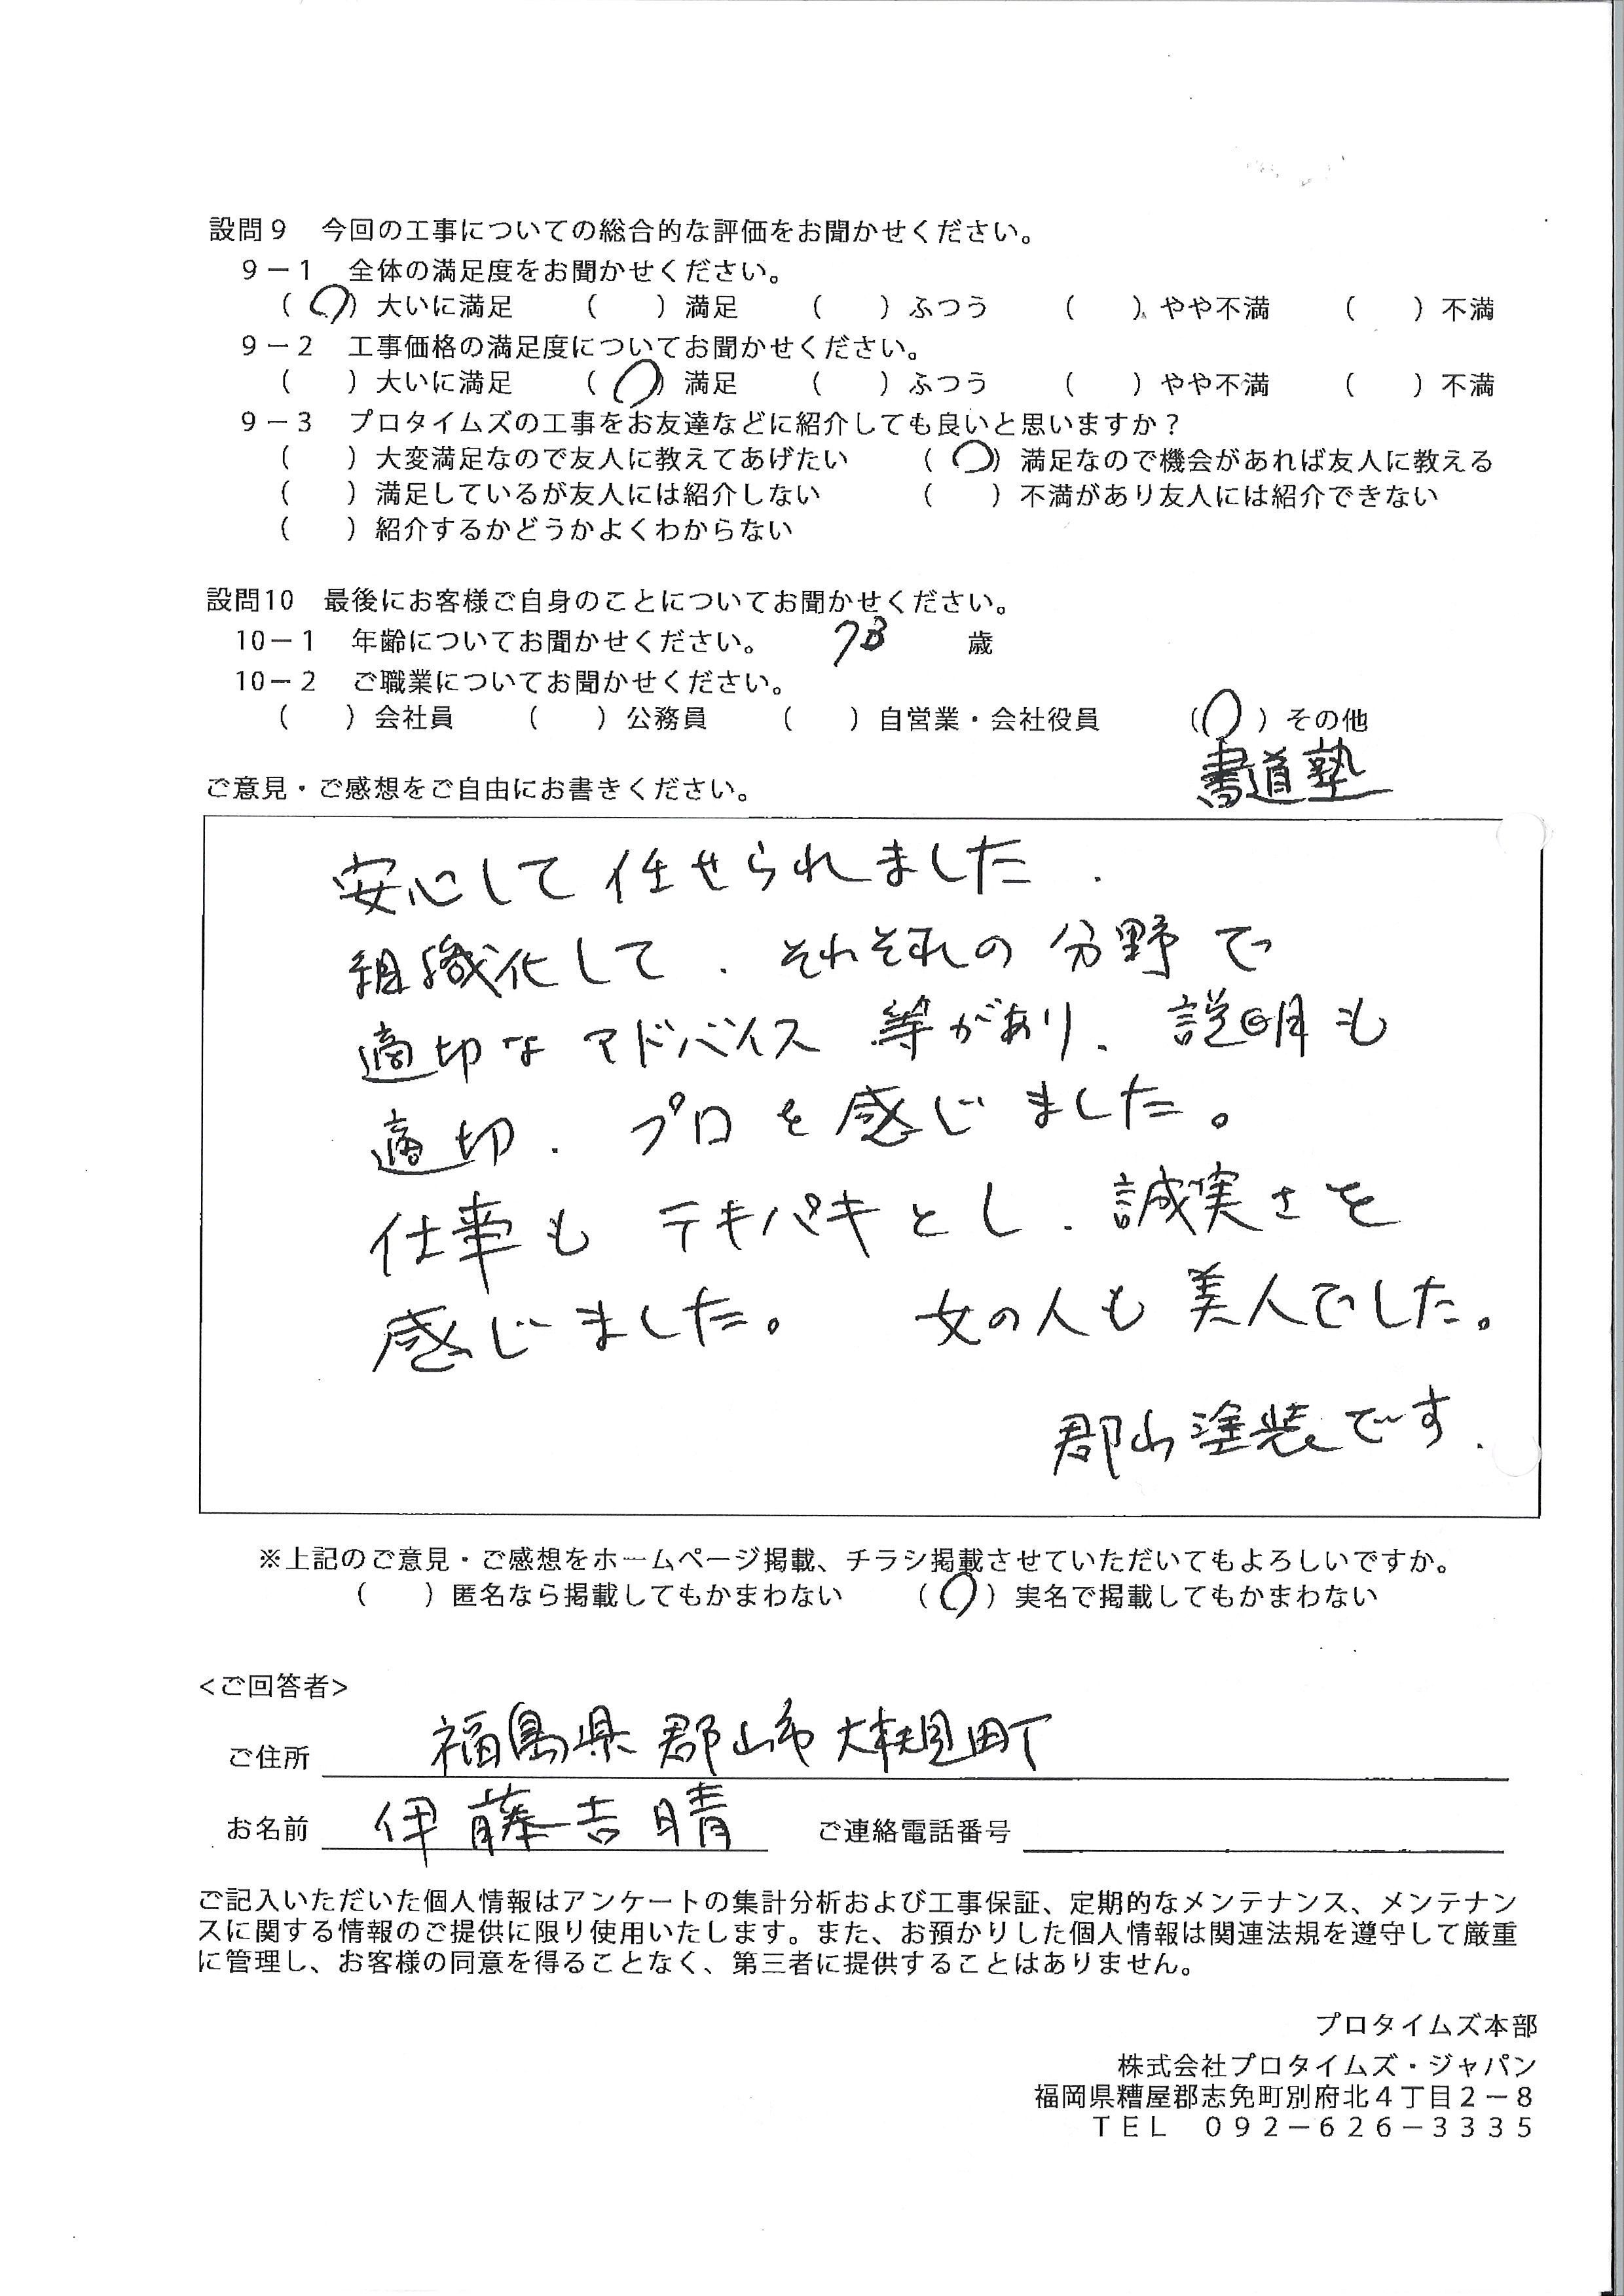 設問9　今回の工事についての総合的な評価をお聞かせください。
9－1　全体の満足度をお聞かせください。
（○）大いに満足　（　）満足　（　）ふつう　（　）やや不満　（　）不満
9－2　工事価格の満足度についてお聞かせください。
（　）大いに満足　（○）満足　（　）ふつう　（　）やや不満　（　）不満
9－3　プロタイムズの工事をお友達などに紹介しても良いと思いますか？
（　）大変満足なので友人に教えてあげたい　（○）満足なので機会があれば友人に教える
（　）満足しているが友人には紹介しない　（　）不満があり友人には紹介できない
（　）紹介するかどうかよくわからない
設問10　最後にお客様ご自身のことについてお聞かせください。
10－1　年齢についてお聞かせください。　73　歳
10－2　ご職業についてお聞かせください。
（　）会社員　（　）公務員　（　）自営業・会社役員　（○）その他
書道塾
ご意見・ご感想をご自由にお書きください。
安心して任せられました．
組織化して．それぞれの分野で
適切なアドバイス等があり、説明も
適切．プロを感じました。
仕事もテキパキとし．誠実さを
感じました。　女の人も美人でした。
郡山塗装です．
※上記のご意見・ご感想をホームページ掲載、チラシ掲載させていただいてもよろしいですか。
（　）匿名なら掲載してもかまわない　（○）実名で掲載してもかまわない
<ご回答者>
ご住所　福島県郡山市大槻町
お名前　伊藤吉晴　ご連絡電話番号
ご記入いただいた個人情報はアンケートの集計分析および工事保証、定期的なメンテナンス、メンテナン
スに関する情報のご提供に限り使用いたします。また、お預かりした個人情報は関連法規を遵守して厳重
に管理し、お客様の同意を得ることなく、第三者に提供することはありません。
プロタイムズ本部
株式会社プロタイムズ・ジャパン
福岡県糟屋郡志免町別府北4丁目2－8
TEL　092－626－3335